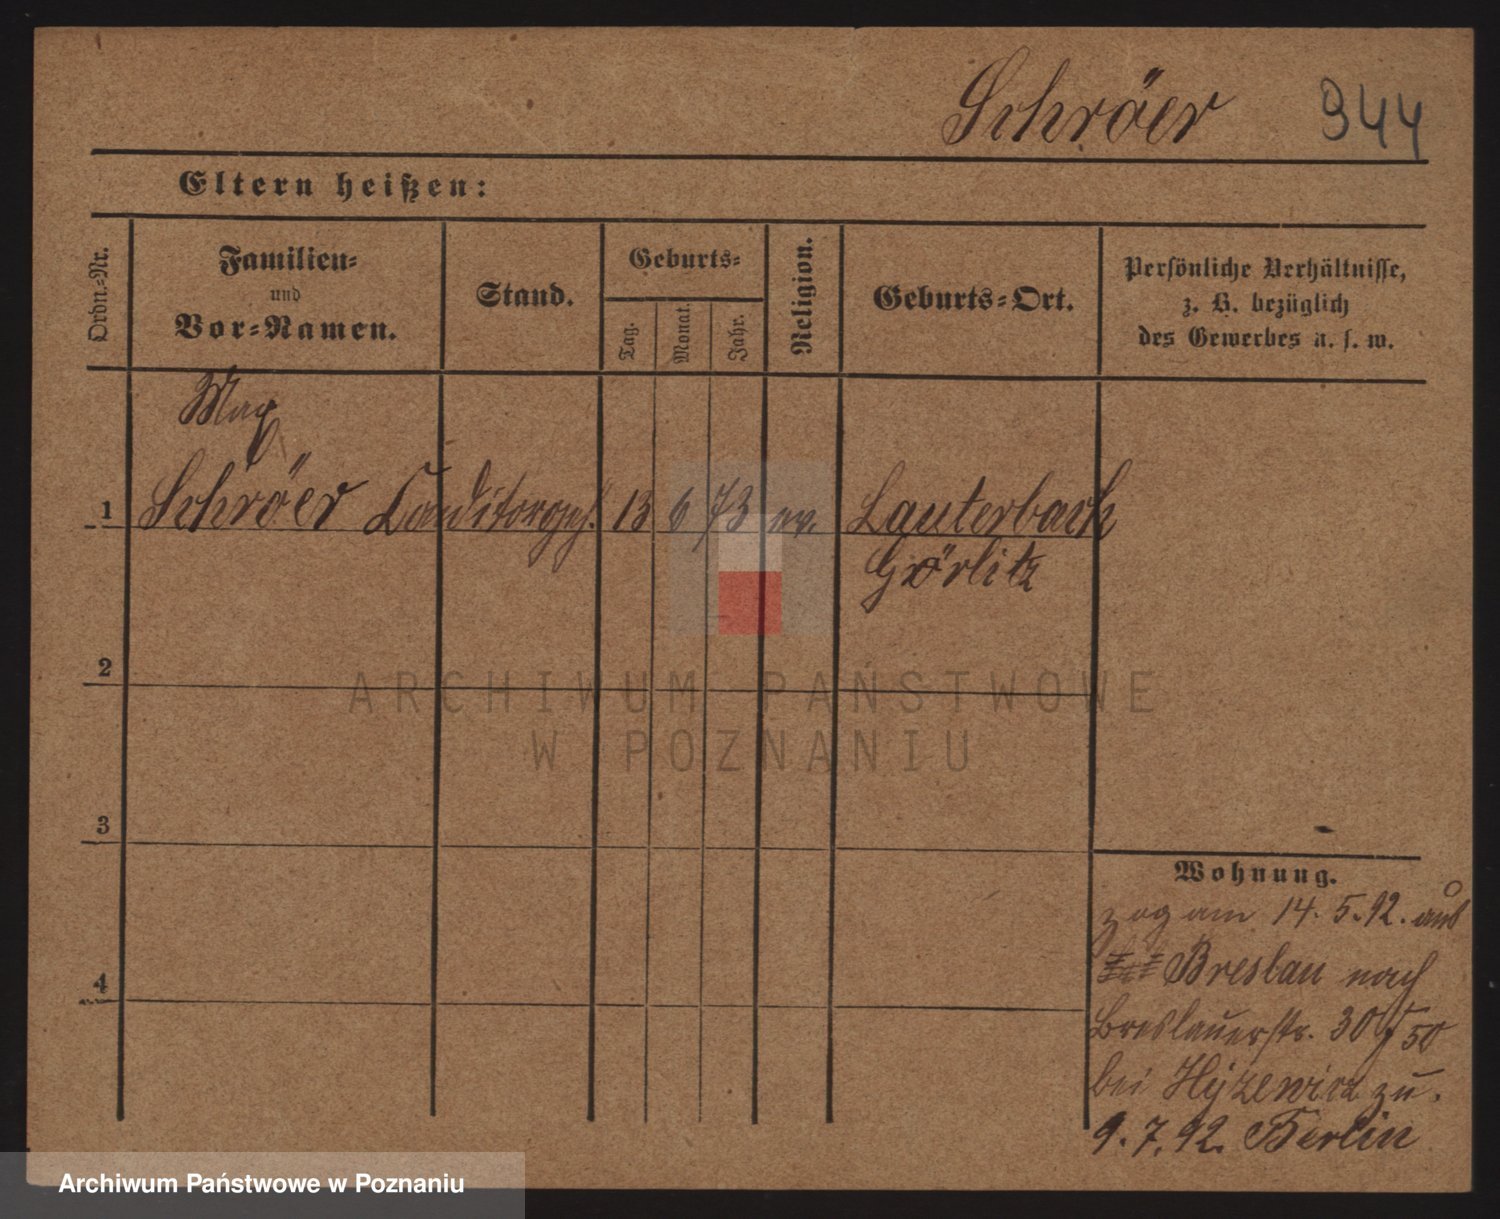 Schröer 944
Eltern heißen:
Ordn.-Nr.
Familien-
und
Vor-Namen.
Stand.
Geburts-
Tag.
Monat.
Jahr.
Religion.
Geburts-Ort.
Persönliche Verhältnisse,
z. B. bezüglich
des Gewerbes u. s. w.
Max
1 Schröer Conditorgeh. 13 6 73 ev. Lauterbach
Görlitz
2
3
4
Wohnung.
zog am 14. 5. 92. aus
Breslau nach
Breslauerstr. 30
bei zu.
9. 7. 92. Berlin
ARCHIWUM PAŃSTWOWE
W POZNANIU
Archiwum Państwowe w Poznaniu